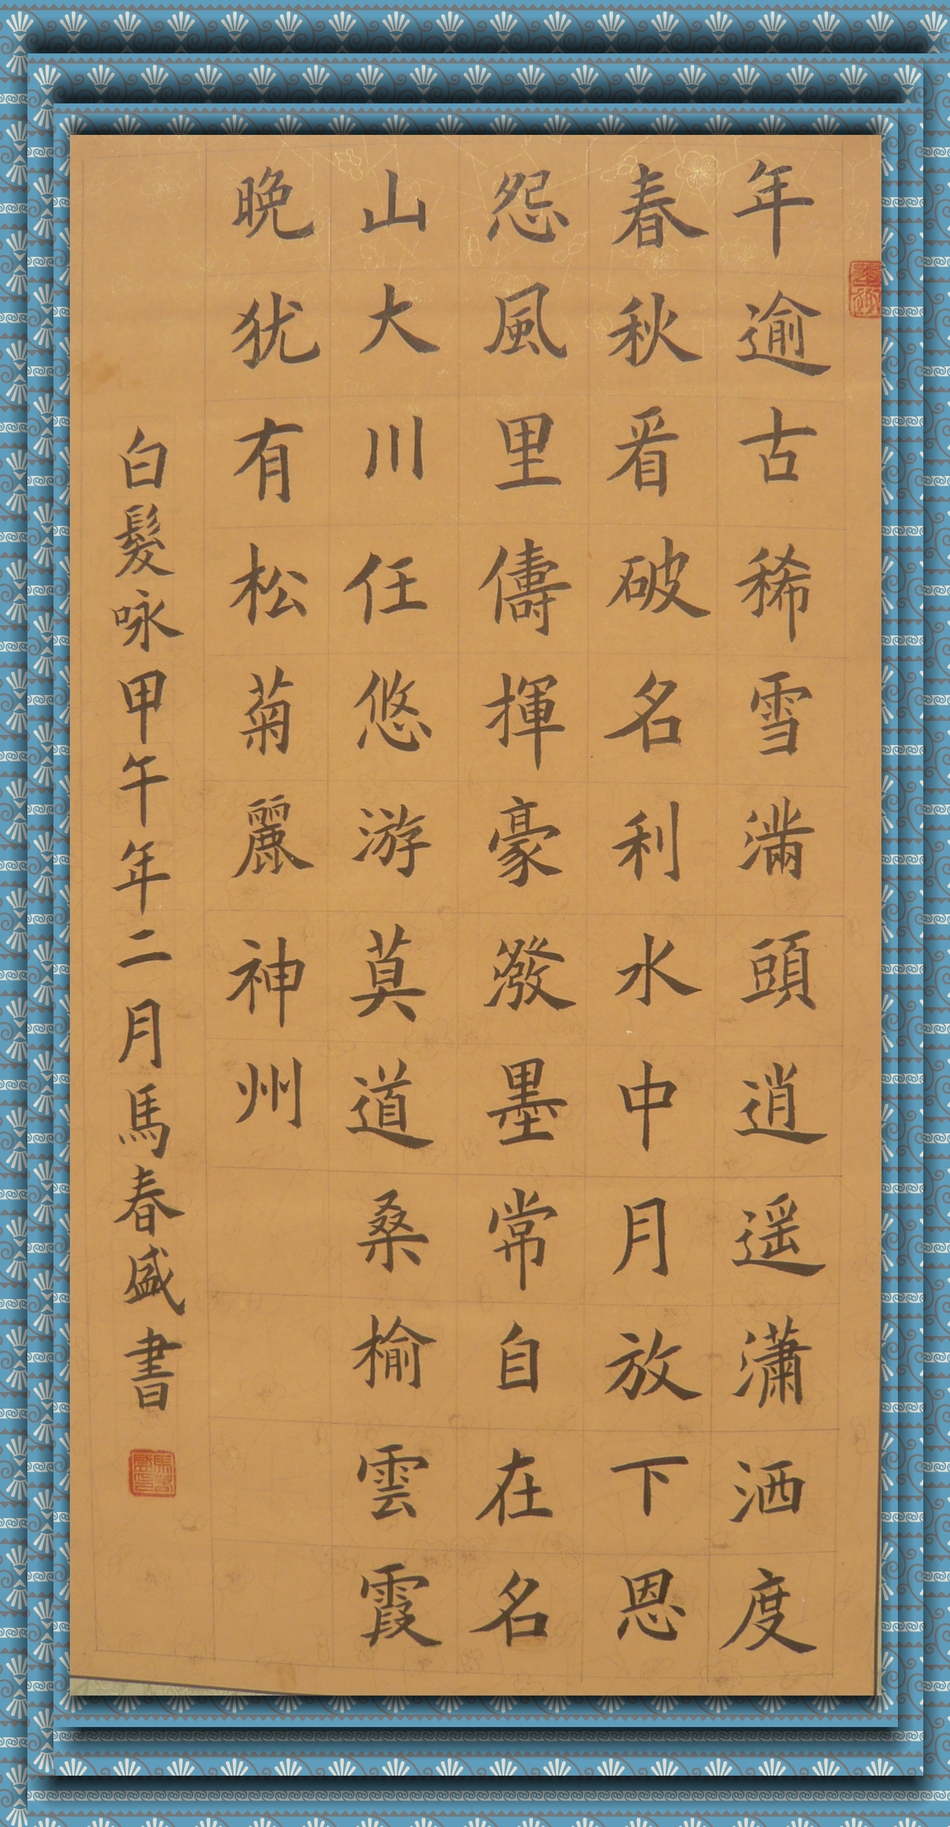 年逾古稀雪滿頭逍遥瀟洒度
春秋看破名利水中月放下恩
怨風里儔揮豪潑墨常自在名
山大川任悠游莫道桑榆雲霞
晚犹有松菊麗神州
白髮咏甲午年二月馬春盛書